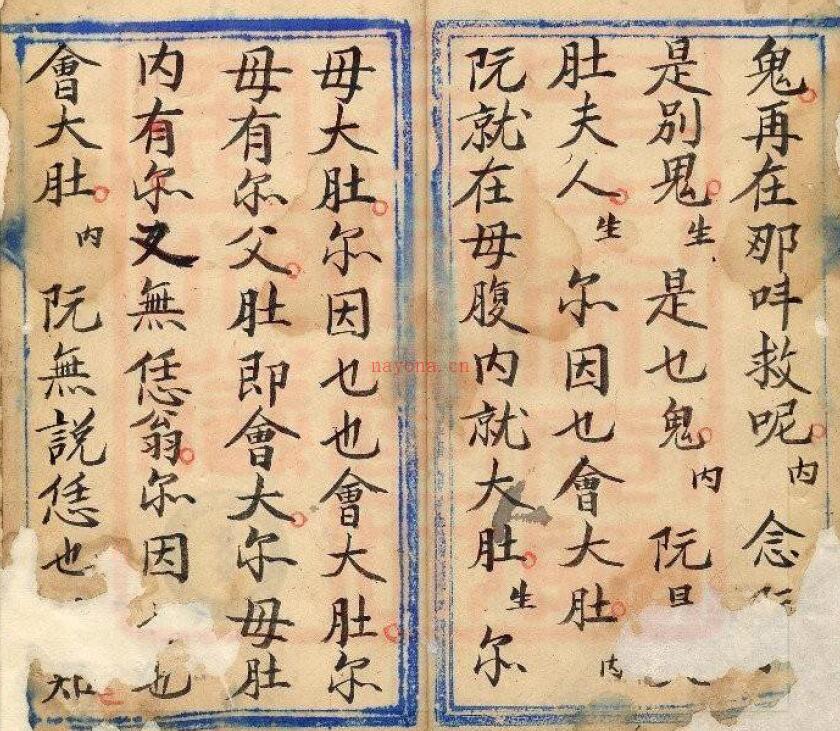 鬼再在那呌救呢内念
是別鬼生是乜鬼内阮
肚夫人生尔因乜會大肚内
阮就在母腹内就大肚生尔
母大肚尔因乜也會大肚尔
母有尔父肚即會大尔母肚
内有尔又無恁翁尔因也
會大肚内阮無説恁也
nayona.cn